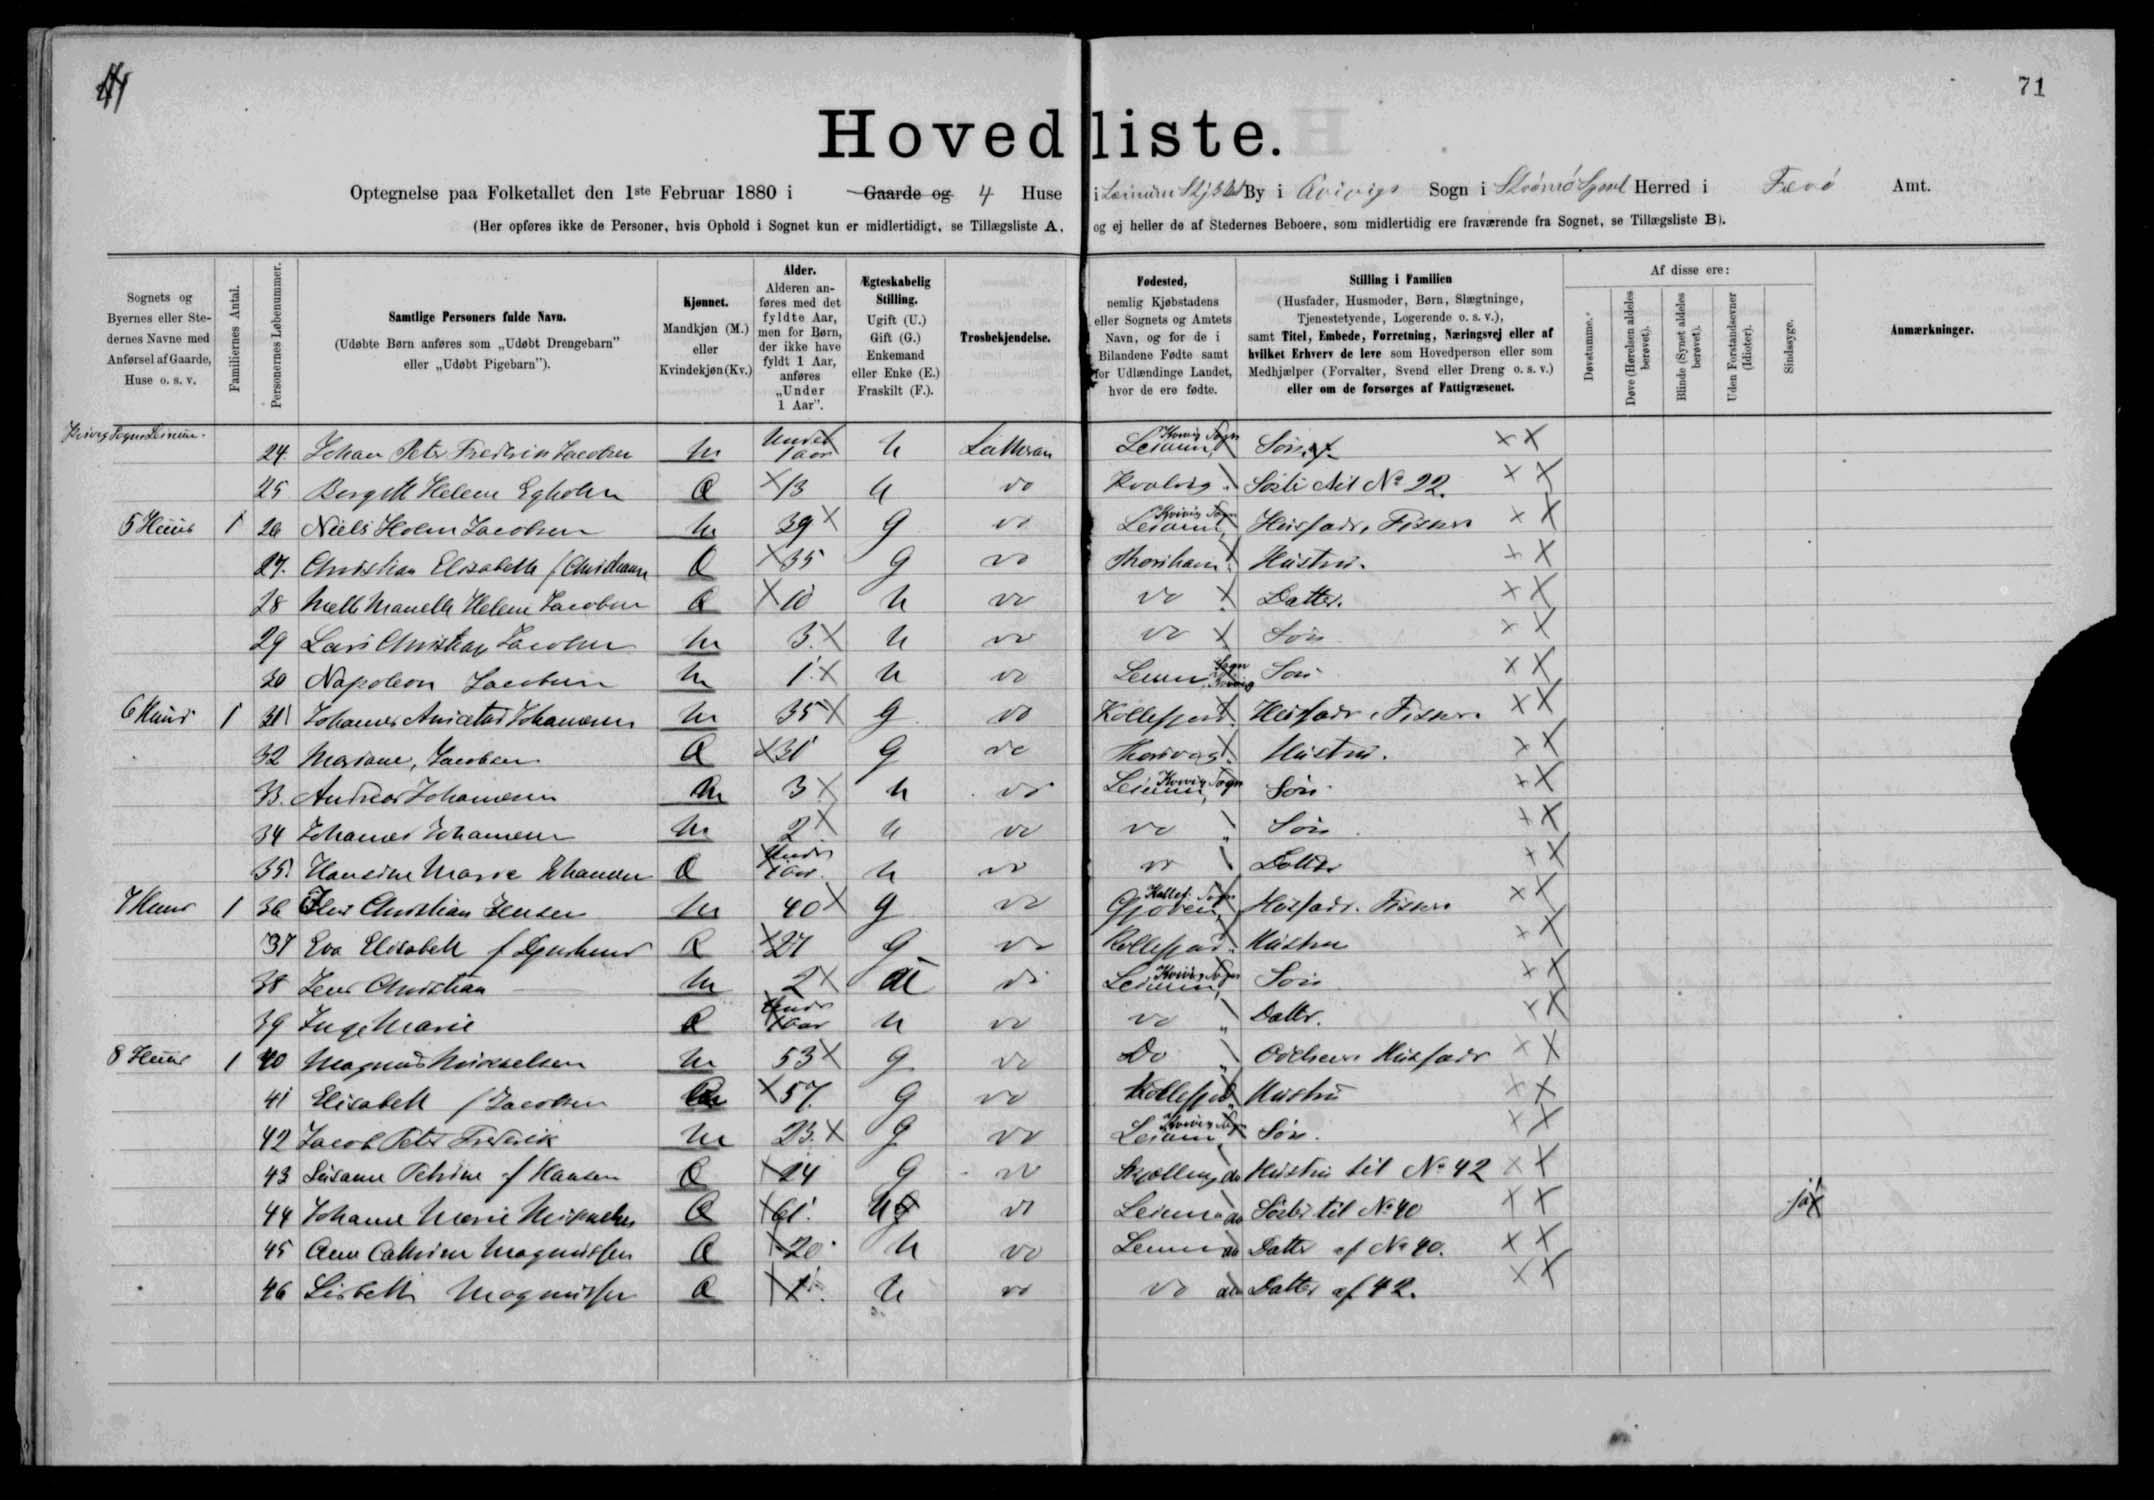 71
Hovedliste.
Optegnelse paa Folketallet den 1ste Februar 1880 i Gaarde og 4 Huse i By i Qvivigs Sogn i Strömö Syssel Herred i Færö Amt.
(Her opføres ikke de Personer, hvis Ophold i Sognet kun er midlertidigt, se Tillægsliste A, og ej heller de af Stedernes Beboere, som midlertidig ere fraværende fra Sognet, se Tillægsliste B).
Sognets og Byernes eller Stedernes Navne med Anførsel af Gaarde, Huse o. s. v.
Familiernes Antal.
Personernes Løbenummer.
Samtlige Personers fulde Navn.
(Udøbte Børn anføres som „Udøbt Drengebarn” eller „Udøbt Pigebarn”).
Kjønnet.
Mandkjøn (M.) eller Kvindekjøn (Kv.)
Alder.
Alderen anføres med det fyldte Aar, men for Børn, der ikke have fyldt 1 Aar, anføres „Under 1 Aar”.
Ægteskabelig Stilling.
Ugift (U.) Gift (G.) Enkemand eller Enke (E.) Fraskilt (F.).
Trosbekjendelse.
Fødested,
nemlig Kjøbstadens eller Sognets og Amtets Navn, og for de i Bilandene Fødte samt for Udlændinge Landet, hvor de ere fødte.
Stilling i Familien
(Husfader, Husmoder, Børn, Slægtninge, Tjenestetyende, Logerende o. s. v.),
samt Titel, Embede, Forretning, Næringsvej eller af hvilket Erhverv de leve som Hovedperson eller som Medhjælper (Forvalter, Svend eller Dreng o. s. v.) eller om de forsørges af Fattigvæsenet.
Af disse ere:
Døvstumme.
Døve (Hørelsen aldeles berøvet).
Blinde (Synet aldeles berøvet).
Uden Forstandsevner (Idioter).
Sindssyge.
Anmærkninger.
24. Johan Peter Fredrik Jacobsen M Under 1 aar U Lutheran Leinum, Kvivig Sogn Søn XX
25 Q X 13 U do Söster til No 22. XX
5 Huus 1 26 Niels Holm Jacobsen M 39 X G do Leinum, Kvivig Sogn Husfader, Fisker XX
27. Christian Elisabeth f Q X 35 G do Thorshavn Hustru. XX
28 Helene Jacobsen Q X 10 U do do X Datter. XX
29 Lars Christian Jacobsen M 3. X U do do X Søn XX
30 Napoleon Jacobsen M 1. X U do Leinum Sogn Kvivig Søn XX
6 Huus 1 31 Johannes Johannesen M 35 X G do Kollefjord Husfader, Fisker XX
32 Mariane, Jacobsen Q X 31 G do Hustru. XX
33. Andreas Johannesen M 3 X U do Leinum, Kvivig Sogn Søn XX
34 Johannes Johannesen M 2 X U do do " Søn XX
35. Hansine Marie Johannesen Q Under 1 aar U do do Datter XX
7 Huus 1 36 Christian Jensen M 40 X G do Kollef. Sogn Husfader. Fisker XX
37 Eva Elisabeth f Q X 27 G do Kollefjord Hustru XX
38 Jens Christian M 2 X U do Leinum, Kvivig Sogn Søn XX
39 Inge Marie Q Under 1 aar U do do " Datter. XX
8 Huus 1 40 Magnus Mikkelsen M 53 X G do Do " Husfader XX
41 Elisabeth f Jacobsen Q X 57. G do Kollefjord Hustru XX
42 Jacob Peter Frederik M 23. X G do Leinum, Kvivig Sogn Søn. XX
43 Susanne Petrine f Hansen Q X 24 G do Skjælling do Hustru til No 42 XX
44 Johanne Marie Mikkelsen Q X 61. U do Leinum do Söster til No 40 XX ja X
45 Ane Cathrine Magnussen Q X 20. U do Leinum do Datter af No 40. XX
46 Lisbeth Magnussen Q X 1. U do do do Datter af 42. XX